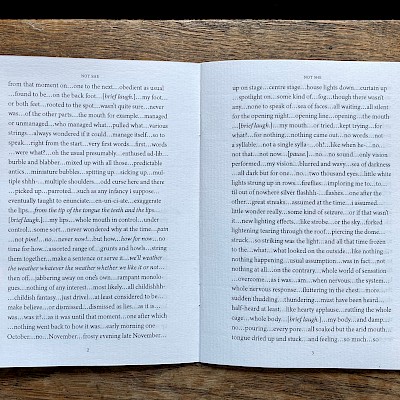 NOT SHE
from that moment on…one to the next…obedient as usual
…found to be…on the back foot…[brief laugh.]…my foot…
or both feet…rooted to the spot…wasn't quite sure…never
was…of the other parts…the mouth for example…managed
or unmanaged…who managed what…pulled what…various
strings…always wondered if it could…manage itself…so to
speak…right from the start…very first words…first…words
…were what?…oh the usual presumably…enthused ad-lib…
burble and blabber…mixed up with all those…predictable
antics…miniature bubbles…spitting up…sicking up…mul-
tiple shhh…multiple shoulders…odd curse here and there
…picked up…parroted…such as any infancy I suppose…
eventually taught to enunciate…en-un-ci-ate…exaggerate
the lips…from the tip of the tongue the teeth and the lips…
[brief laugh.]…my lips…whole mouth in control…under
control…some sort…never wondered why at the time…pain
…not pow!…no…never now!…but how…how for now…no
time for how…assorted range of…grunts and howls…string
them together…make a sentence or serve it…we'll weather
the weather whatever the weather whether we like it or not…
then off…jabbering away on one's own…rampant monolo-
gues…nothing of any interest…most likely…all childishhh-
…childish fantasy…just drivel…at least considered to be…
make believe…or dismissed…dismissed as lies…as it is…
was…was it?…as it was until that moment…one after which
…nothing went back to how it was…early morning one
October…no…November…frosty evening late November…
2
NOT SHE
up on stage…centre stage…house lights down…curtain up
…spotlight on…some kind of…fog…though there wasn't
any…none to speak of…sea of faces…all waiting…all silent
for the opening night…opening line…opening…the mouth
…[brief laugh.]…my mouth…or tried…kept trying…for
what?…for nothing…nothing came out…no words…not
a syllable…not a single sylla…oh!…like when he…no…
not that…not now…[pause.]…no…no sound…only vision
performed…my vision…blurred and wavy…sea of darkness
…all dark but for one…no…two thousand eyes…little white
lights strung up in rows…fireflies…imploring me to…to…
til out of nowhere silver flashhh…flashes…one after the
other…great streaks…assumed at the time…I assumed…
little wonder really…some kind of seizure…or if that wasn't
it…new lighting effects…like strobe…or the sky…forked
lightening tearing through the roof…piercing the dome…
struck…so striking was the light…and all that time frozen
to the…what…what looked on the outside…like nothing…
nothing happening…usual assumption…was in fact…not
nothing at all…on the contrary…whole world of sensation
…overcome…as i was…am…when nervous…the system…
whole nervous response…fluttering in the chest…more…
sudden thudding…thundering…must have been heard…
half-heard at least…like hearty applause…rattling the whole
cage…whole body…[brief laugh.]…my body…and damp…
no…pouring…every pore…all soaked but the arid mouth…
tongue dried up and stuck…and feeling…so much…so…
3